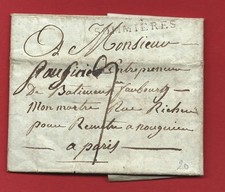 SOMMIERES
a Monsieur
Rougier Entrepreneur
de Batimens faubourg
Mon martre Rue Richer
pour Remetre a nougier
a paris
20